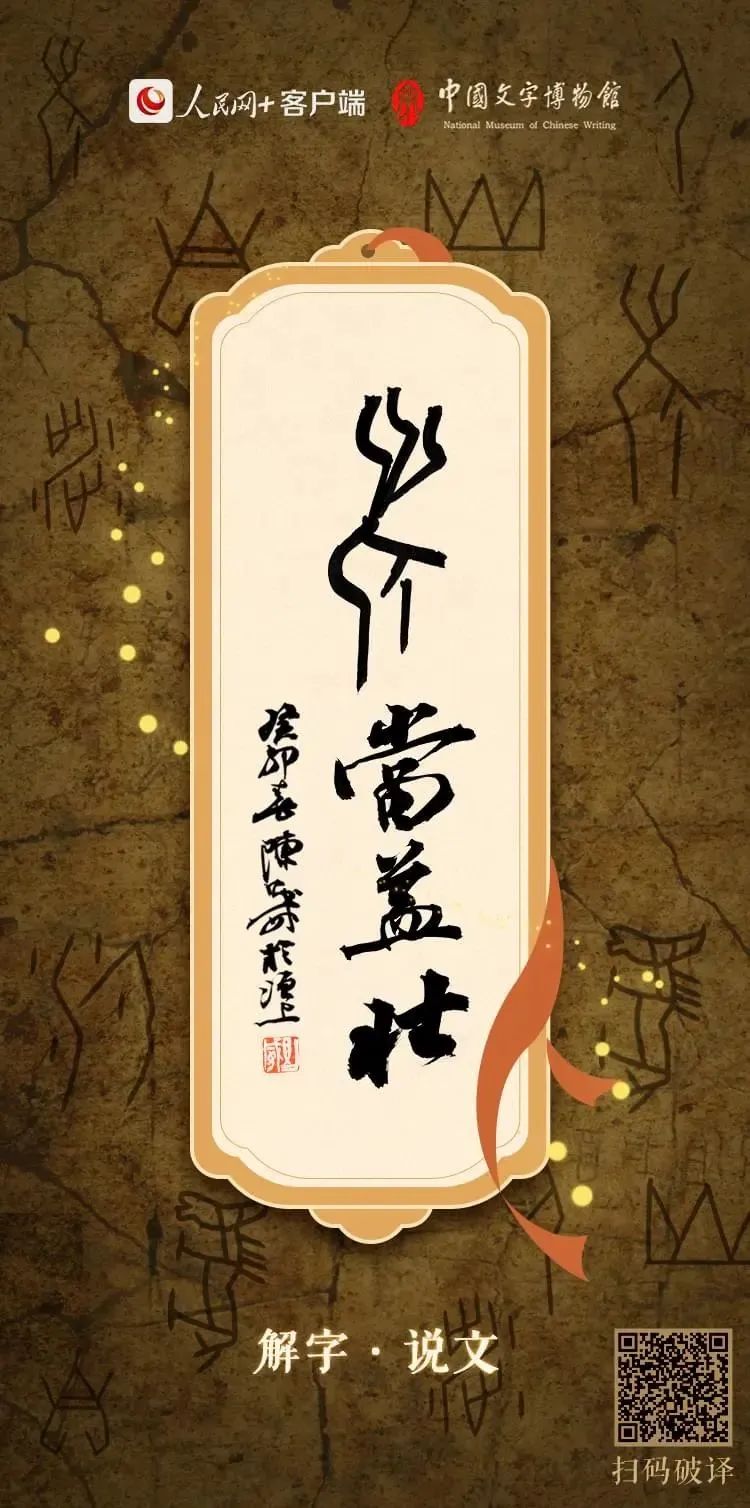 人民网+客户端
中國文字博物館
National Museum of Chinese Writing
老當益壮
癸卯春陳 於洹上
解字·说文
扫码破译